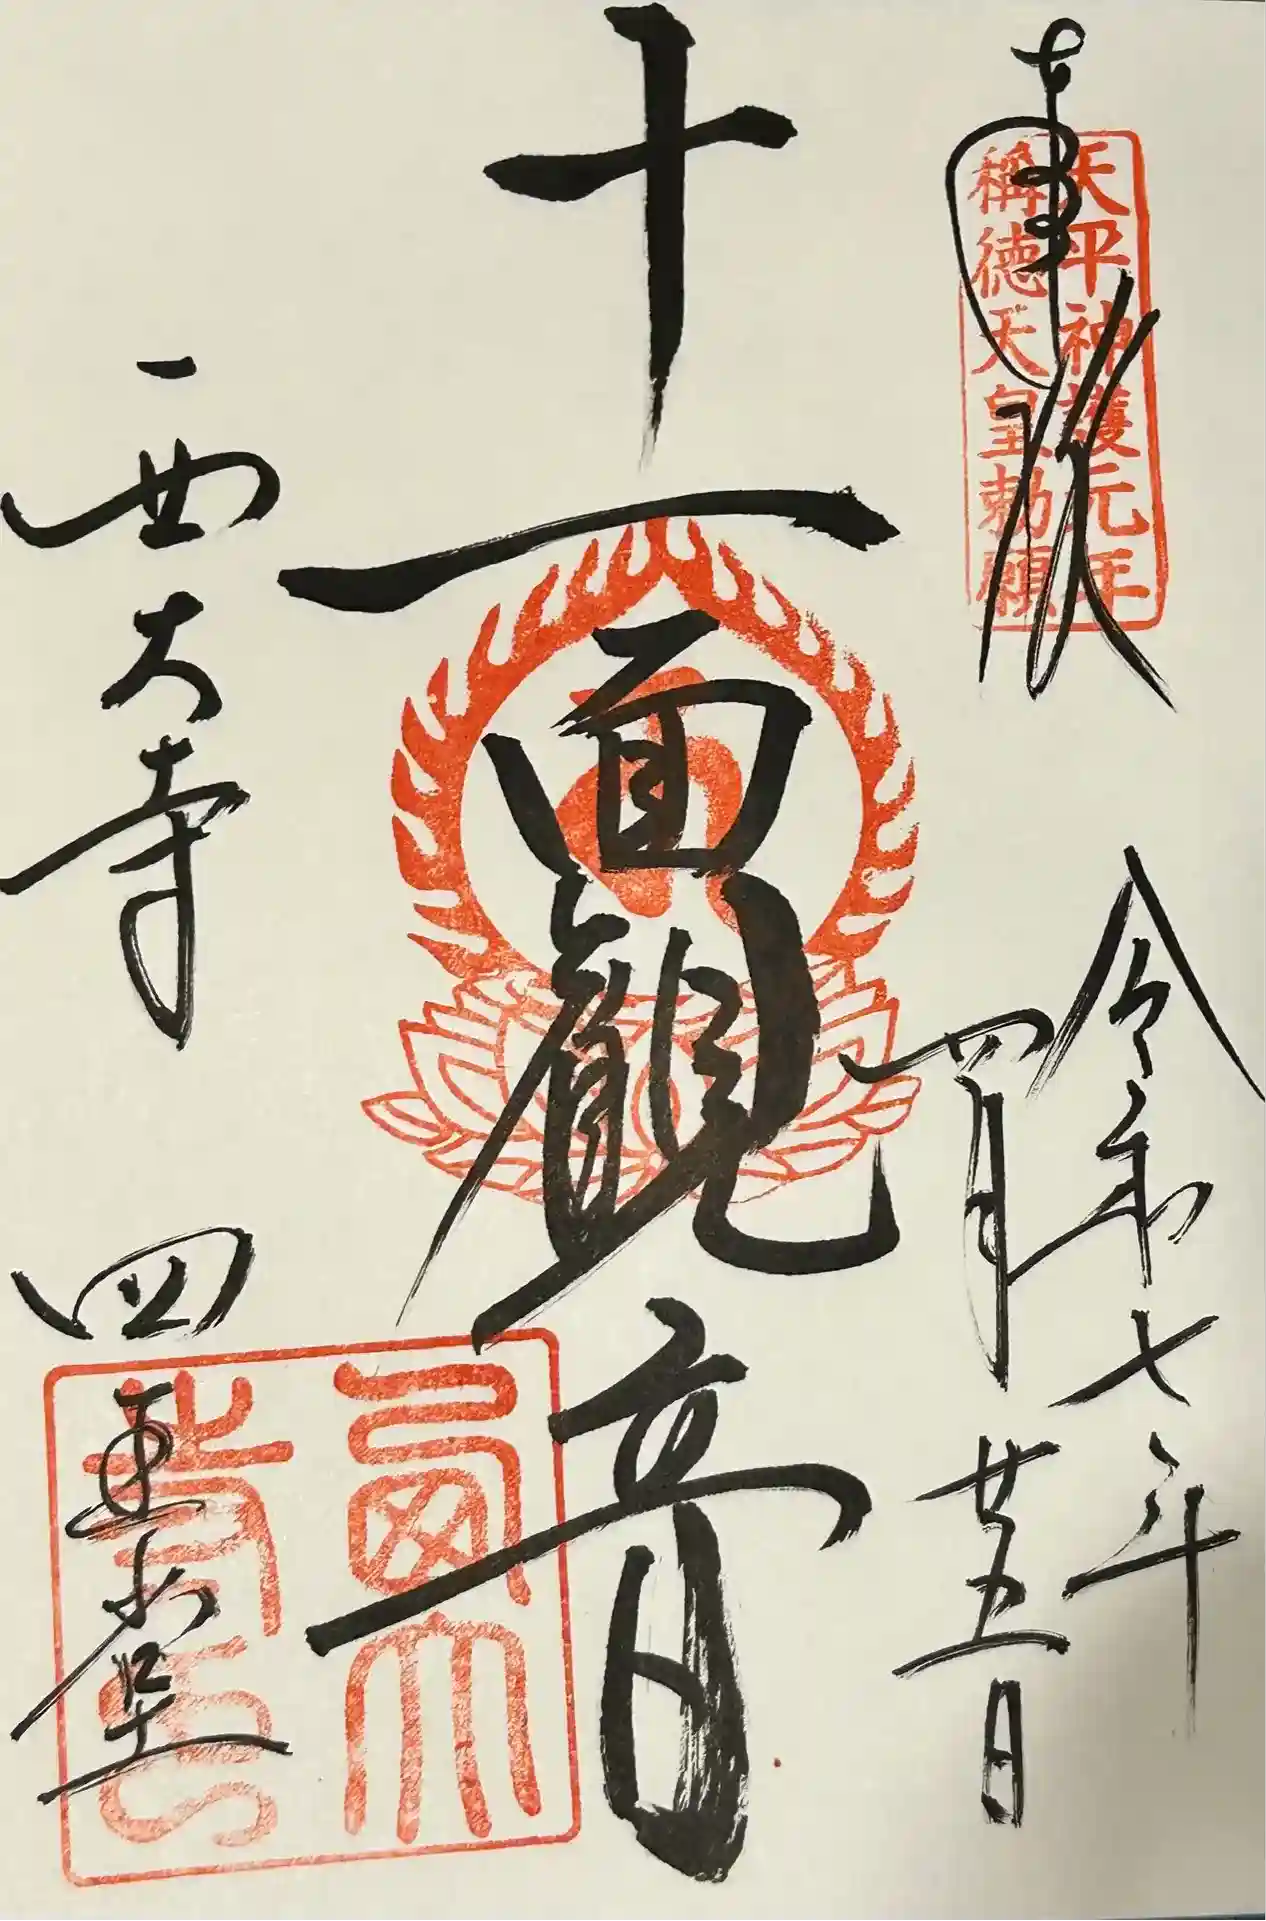 奉拝
天平神護元年
稱徳天皇勅願
令和七年
四月廿五日
十一面観音
西大寺
四王堂
西大寺